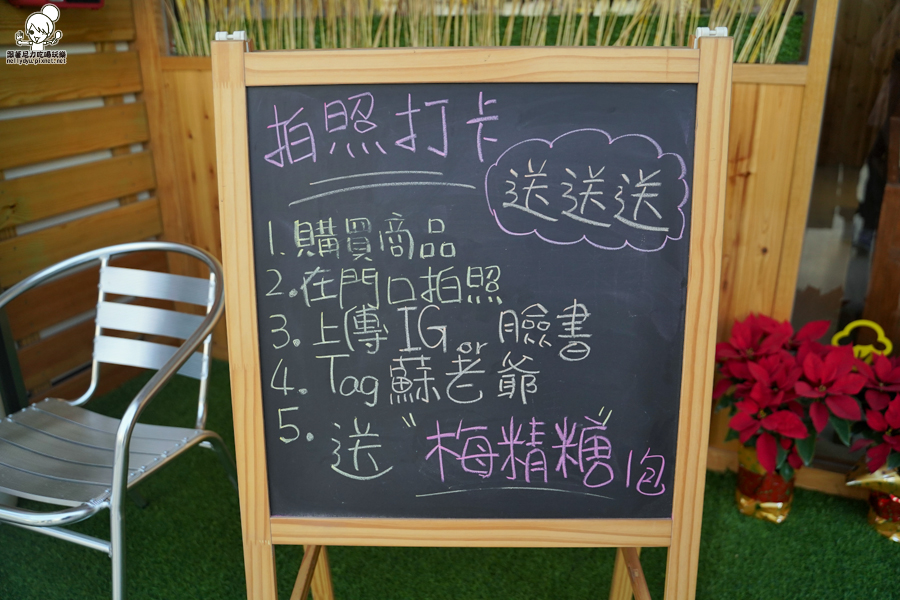 跟著尼力吃喝玩樂
nellydyu.pixnet.net
拍照打卡
送送送
1.購買商品
2.在門口拍照
3.上傳IG or 臉書
4.Tag蘇老爺
5.送"梅精糖"1包